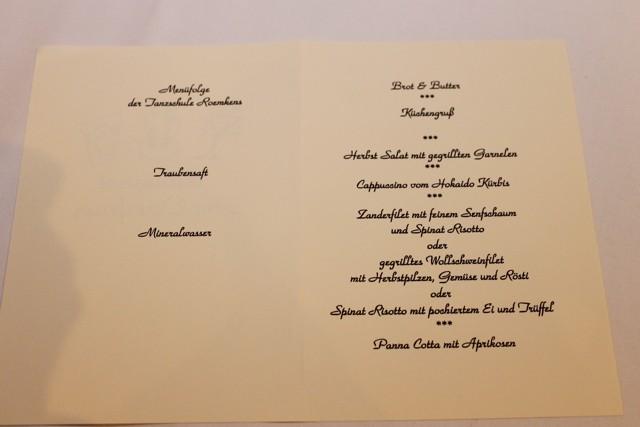 Menüfolge
der Tanzschule Roemkens
Traubensaft
Mineralwasser
Brot & Butter
***
Küchengruß
***
Herbst Salat mit gegrillten Garnelen
***
Cappuccino vom Hokaido Kürbis
***
Zanderfilet mit feinem Senfschaum
und Spinat Risotto
oder
gegrilltes Wollschweinfilet
mit Herbstpilzen, Gemüse und Rösti
oder
Spinat Risotto mit pochiertem Ei und Trüffel
***
Panna Cotta mit Aprikosen